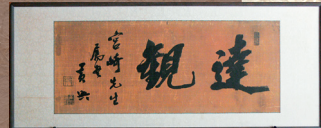 達觀
宮崎先生
屬書
黃興